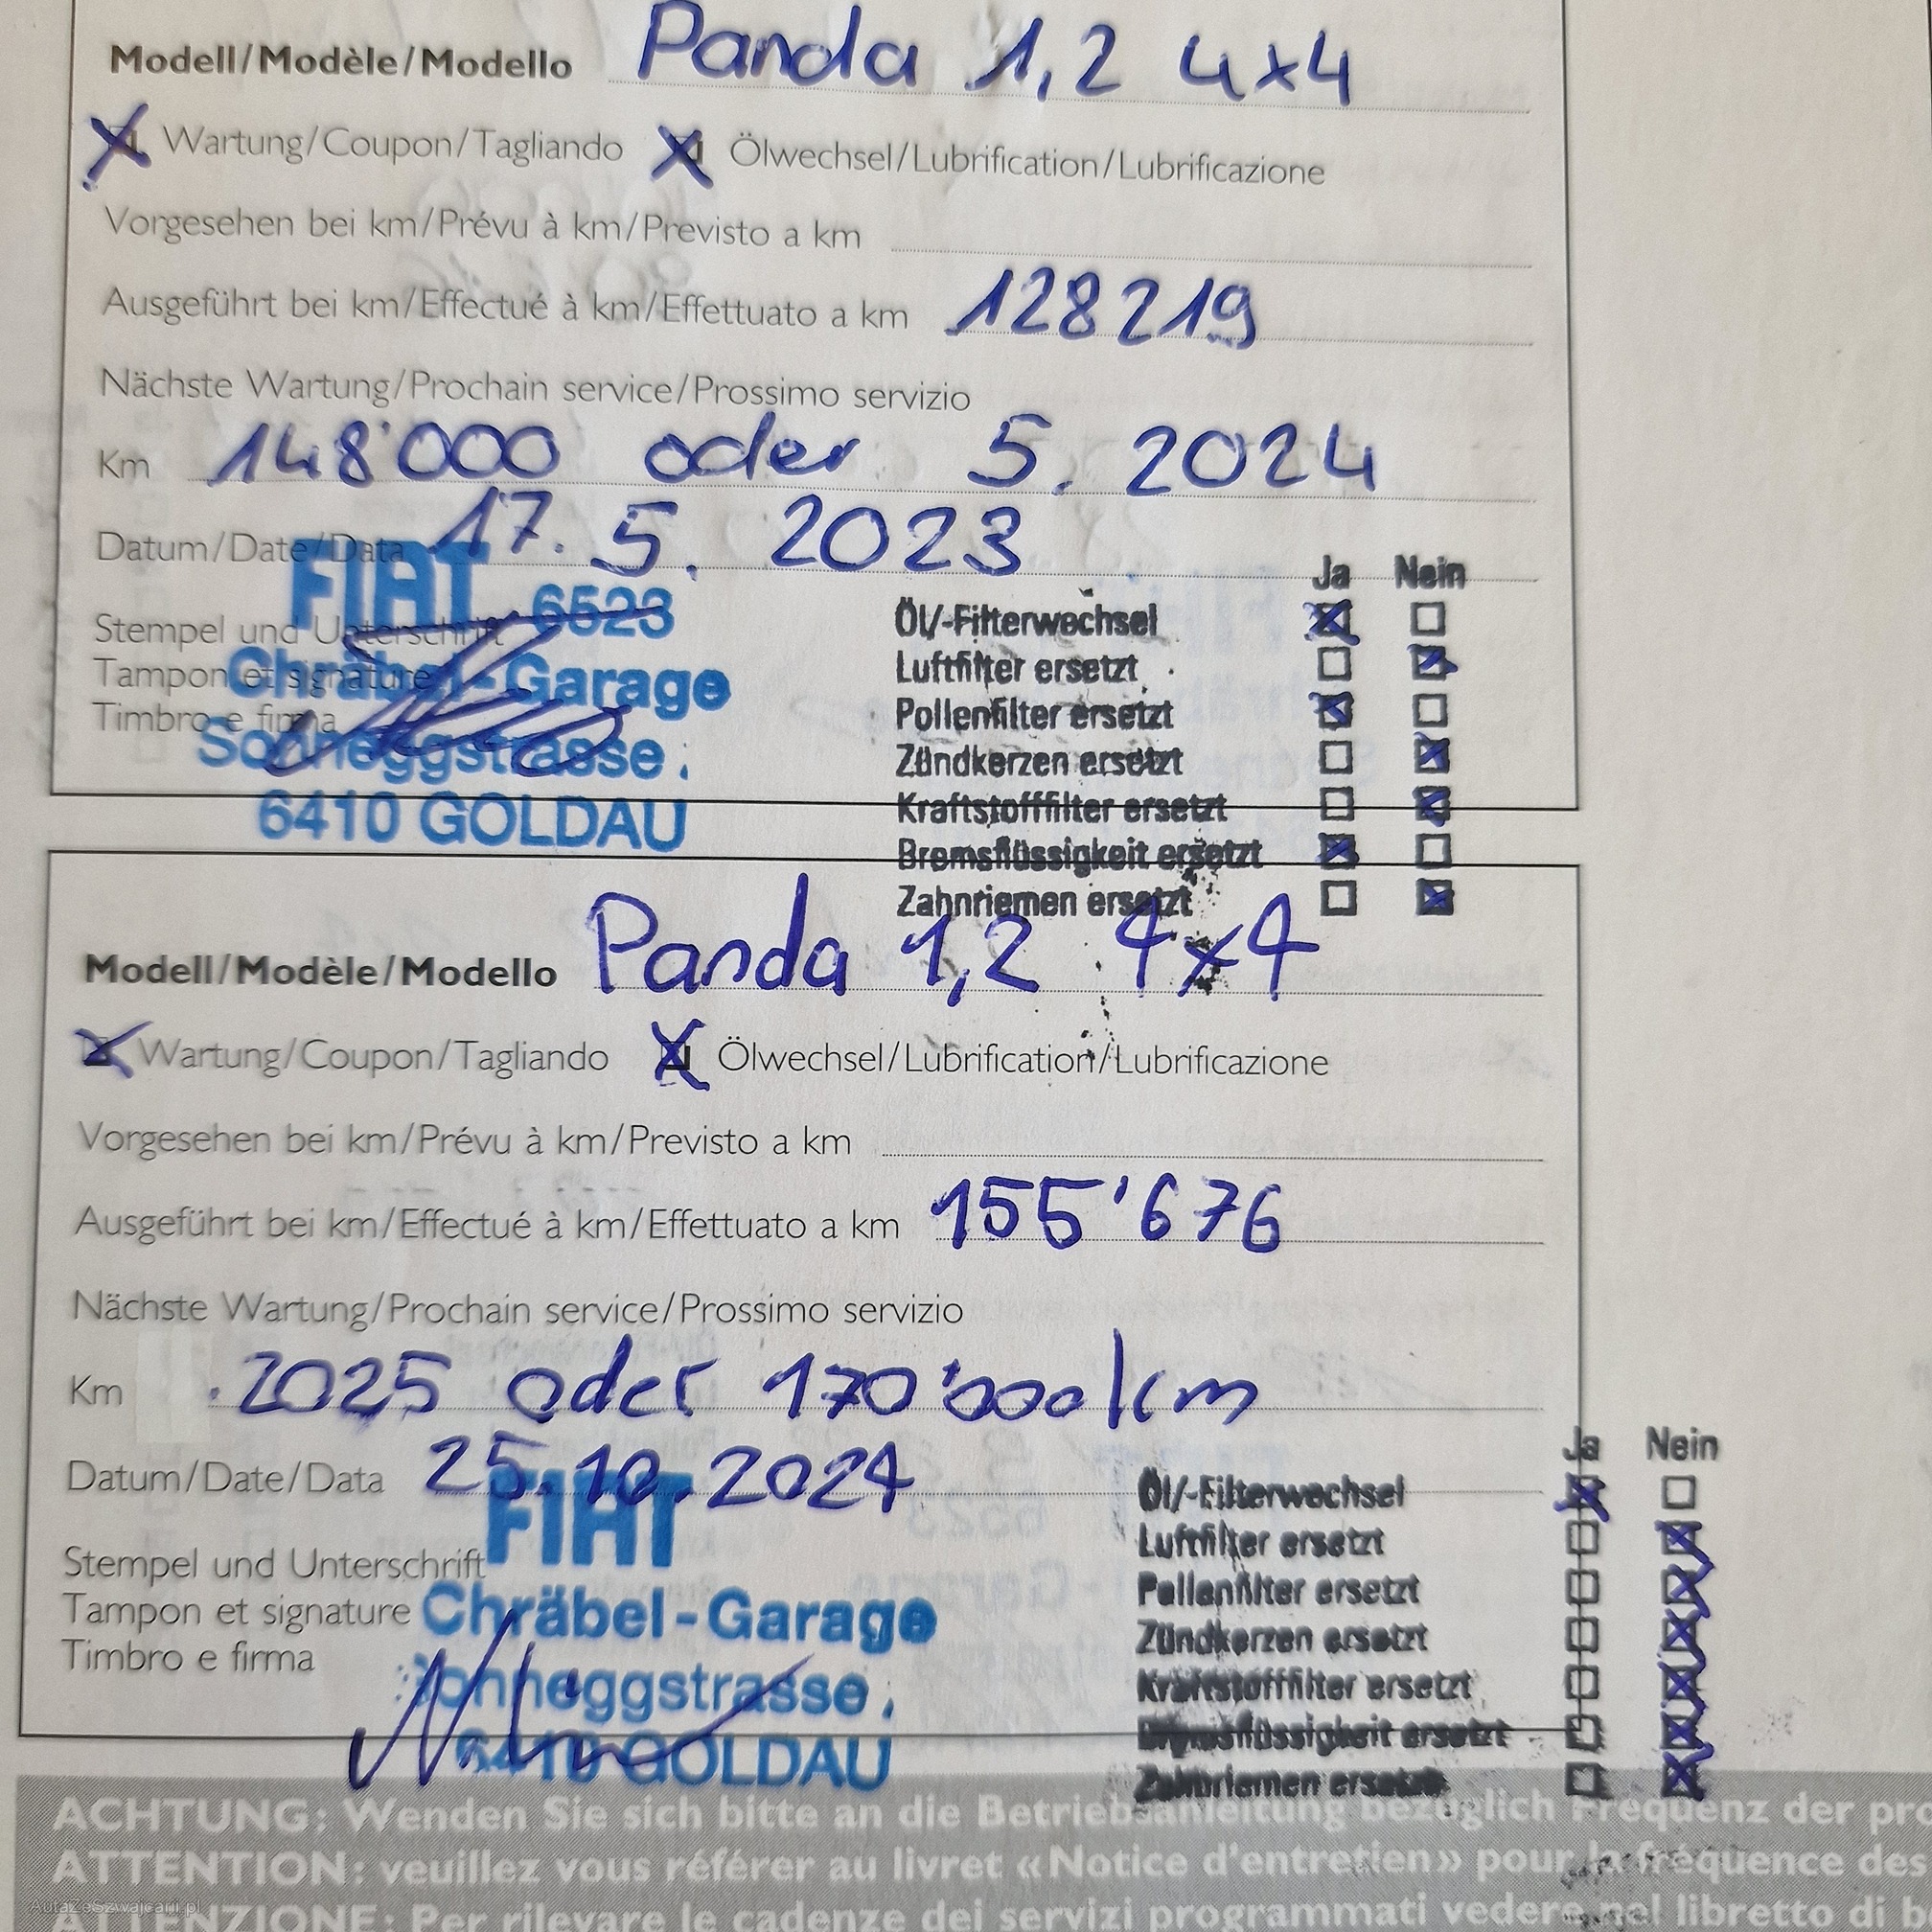 Modell/Modèle/Modello Panda 1,2 4x4
Wartung/Coupon/Tagliando Ölwechsel/Lubrification/Lubrificazione
Vorgesehen bei km/Prévu à km/Previsto a km
Ausgeführt bei km/Effectué à km/Effettuato a km 128219
Nächste Wartung/Prochain service/Prossimo servizio
Km 148'000 oder 5. 2024
Datum/Date/Data 17. 5. 2023
Stempel und Unterschrift
Tampon et signature
Timbro e firma
FIAT 6523
Chräbel-Garage
Sonneggstrasse
6410 GOLDAU
Ja Nein
Öl/-Filterwechsel
Luftfilter ersetzt
Pollenfilter ersetzt
Zündkerzen ersetzt
Kraftstofffilter ersetzt
Bremsflüssigkeit ersetzt
Zahnriemen ersetzt
Modell/Modèle/Modello Panda 1,2 4x4
Wartung/Coupon/Tagliando Ölwechsel/Lubrification/Lubrificazione
Vorgesehen bei km/Prévu à km/Previsto a km
Ausgeführt bei km/Effectué à km/Effettuato a km 155'676
Nächste Wartung/Prochain service/Prossimo servizio
Km .2025 oder 170'000km
Datum/Date/Data 25.10.2024
Stempel und Unterschrift
Tampon et signature
Timbro e firma
FIAT
Chräbel-Garage
Sonneggstrasse
6410 GOLDAU
Ja Nein
Öl/-Filterwechsel
Luftfilter ersetzt
Pollenfilter ersetzt
Zündkerzen ersetzt
Kraftstofffilter ersetzt
Bremsflüssigkeit ersetzt
Zahnriemen ersetzt
ACHTUNG: Wenden Sie sich bitte an die Betriebsanleitung bezüglich Frequenz der pro
ATTENTION: veuillez vous référer au livret «Notice d'entretien» pour la fréquence des
ATTENZIONE: Per rilevare le cadenze dei servizi programmati vedere nel libretto di
AutaZeSzwajcarii.pl